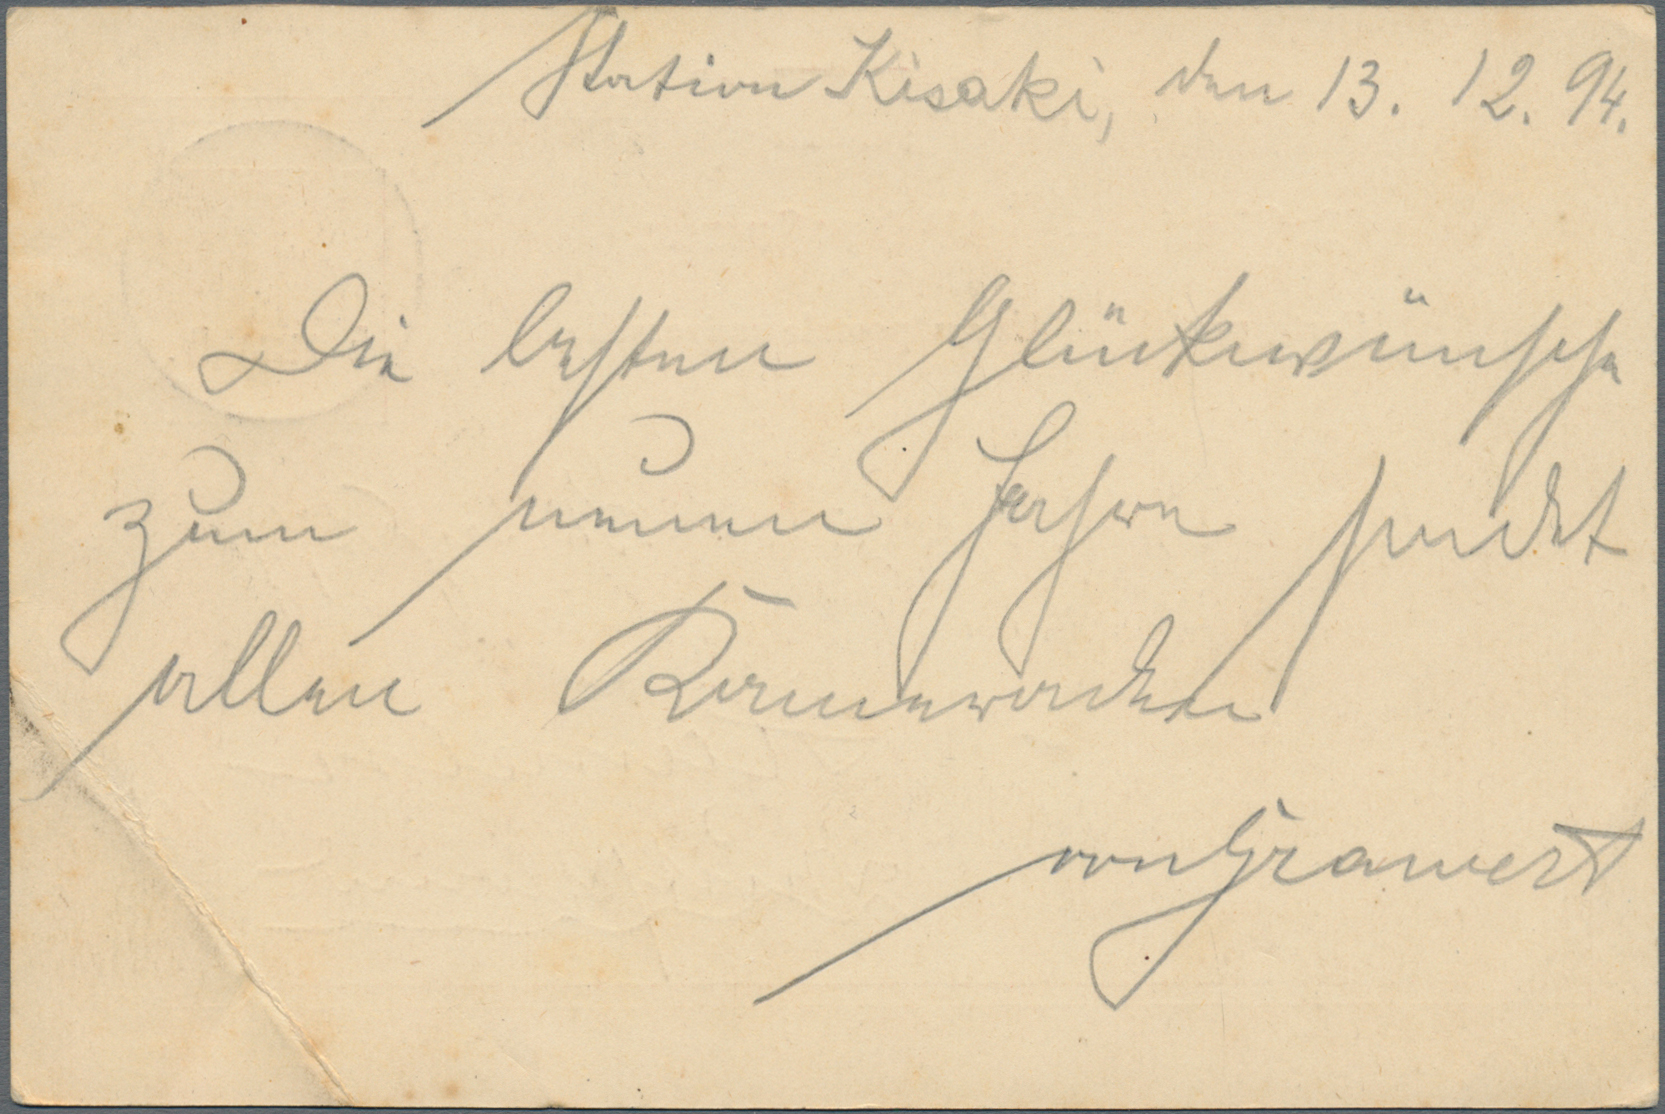 Station Kisaki, den 13. 12. 94.
Die besten Glückwünsche
zum neuen Jahre sendet
allen Kameraden
von Grawert